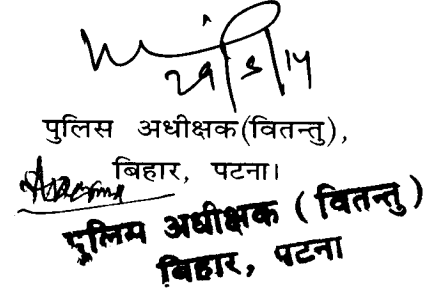 पुलिस अधीक्षक(वितन्तु),
बिहार, पटना।
पुलिस अधीक्षक ( वितन्तु )
बिहार, पटना